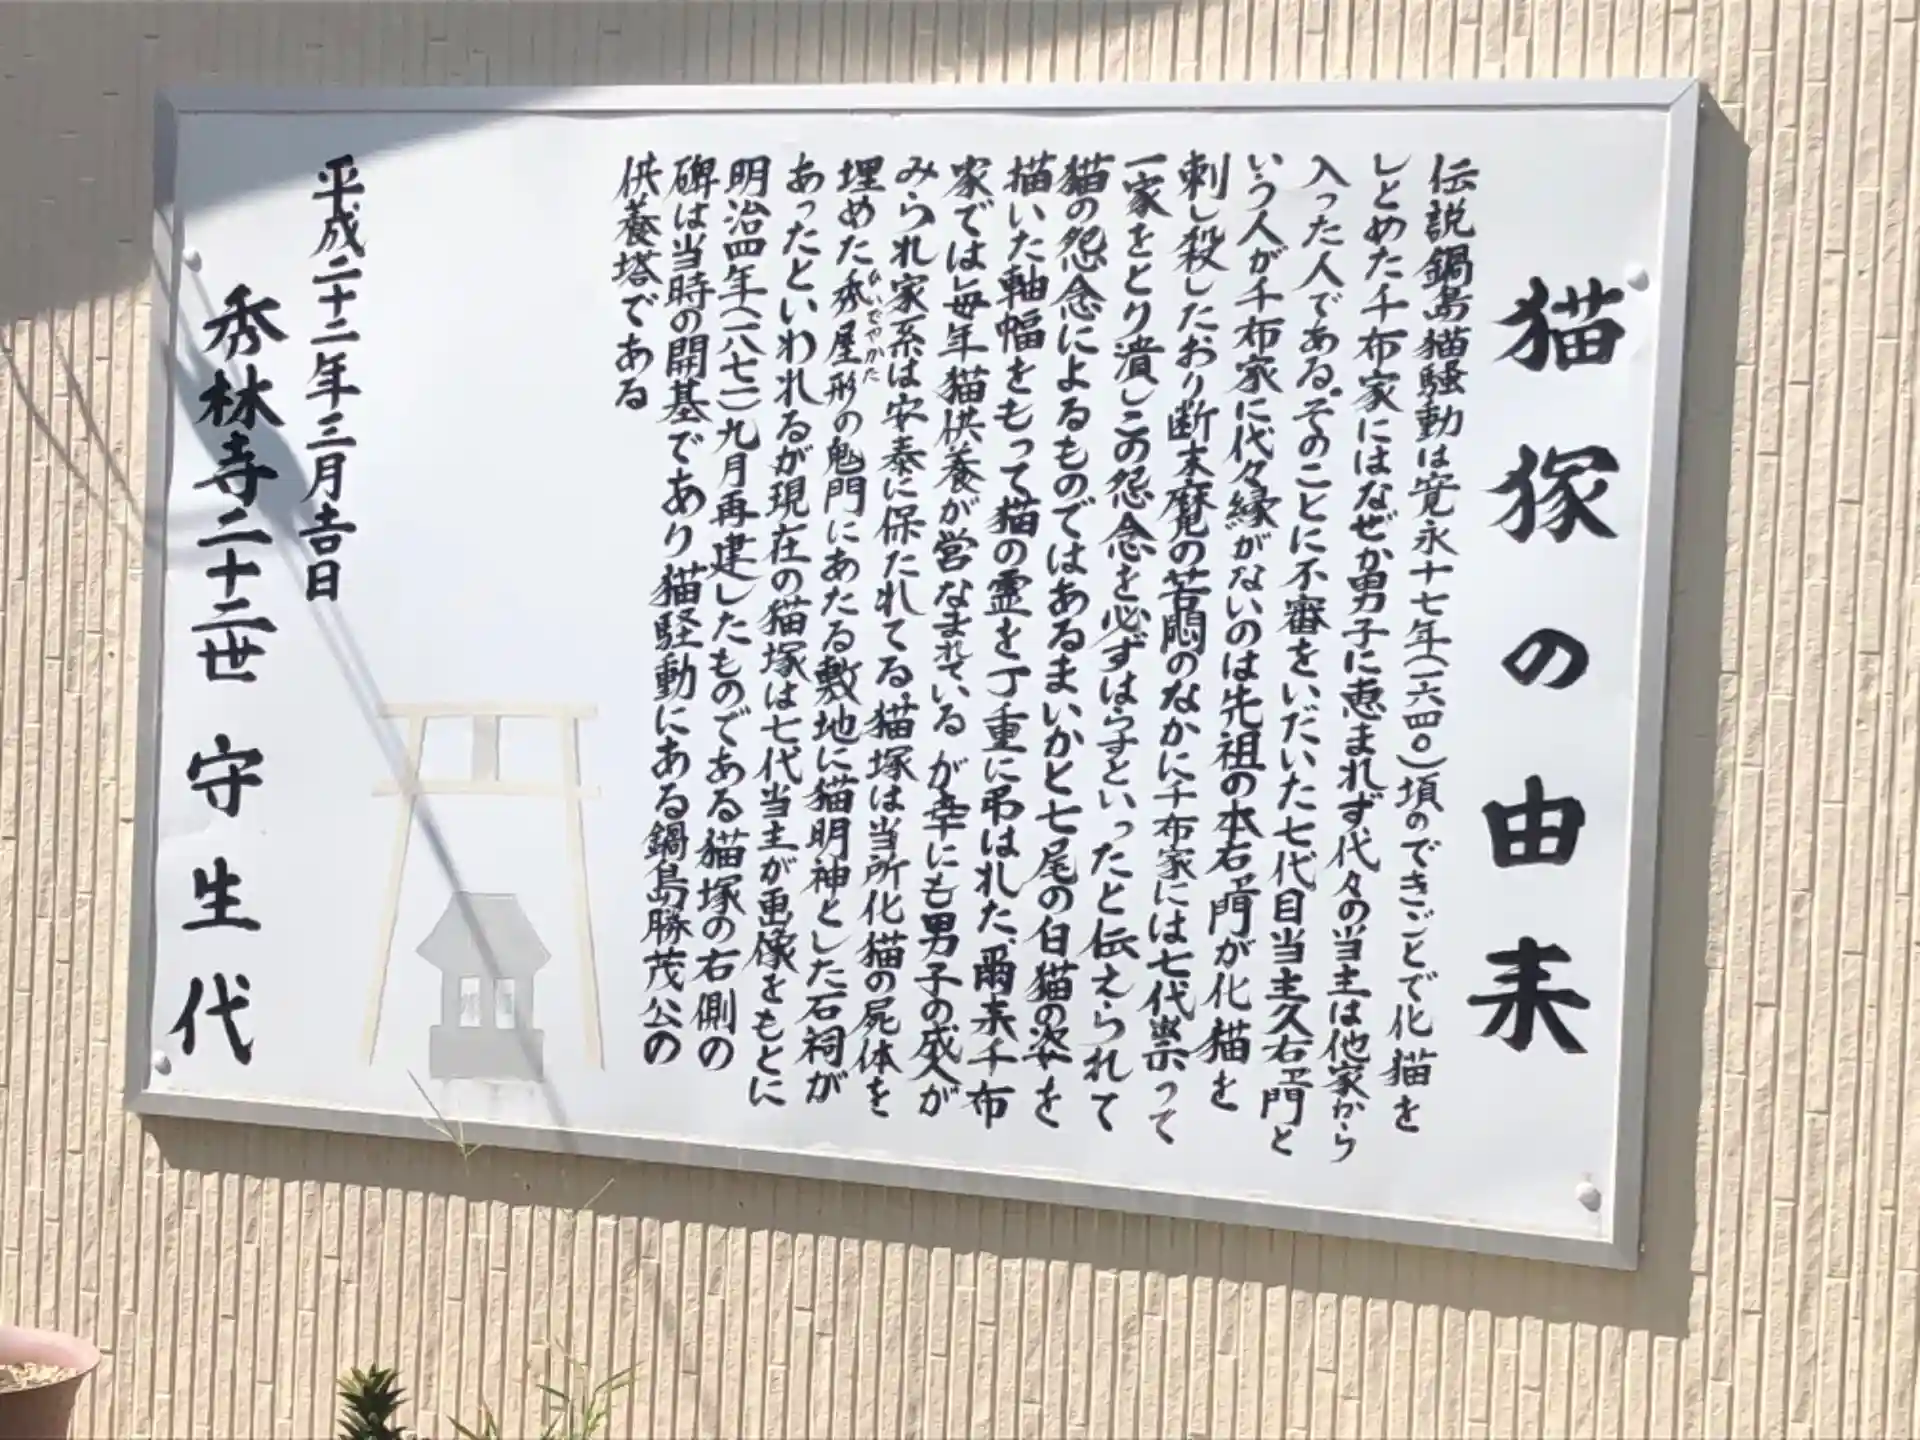 猫塚の由来
伝説鍋島猫騒動は寛永十七年(一六四〇)頃のできごとで化猫を
しとめた千布家にはなぜか男子に恵まれず代々の当主は他家から
入った人である。そのことに不審をいだいた七代目当主久右ヱ門と
いう人が千布家に代々縁がないのは先祖の本右ヱ門が化猫を
刺し殺したおり断末魔の苦悶のなかに千布家には七代祟って
一家をとり潰しこの怨念を必ずはらすといったと伝えられて
猫の怨念によるものではあるまいかと七尾の白猫の姿を
描いた軸幅をもって猫の霊を丁重に弔はれた、爾来千布
家では毎年猫供養が営なまれている が幸にも男子の成人が
みられ家系は安泰に保たれてる。猫塚は当所化猫の屍体を
埋めた秀屋形の鬼門にあたる敷地に猫明神とした石祠が
ひいでやかた
あったといわれるが現在の猫塚は七代当主が画像をもとに
明治四年(一八七一)九月再建したものである猫塚の右側の
碑は当時の開基であり猫騒動にある鍋島勝茂公の
供養塔である
平成二十二年三月吉日
秀林寺二十二世 守生代